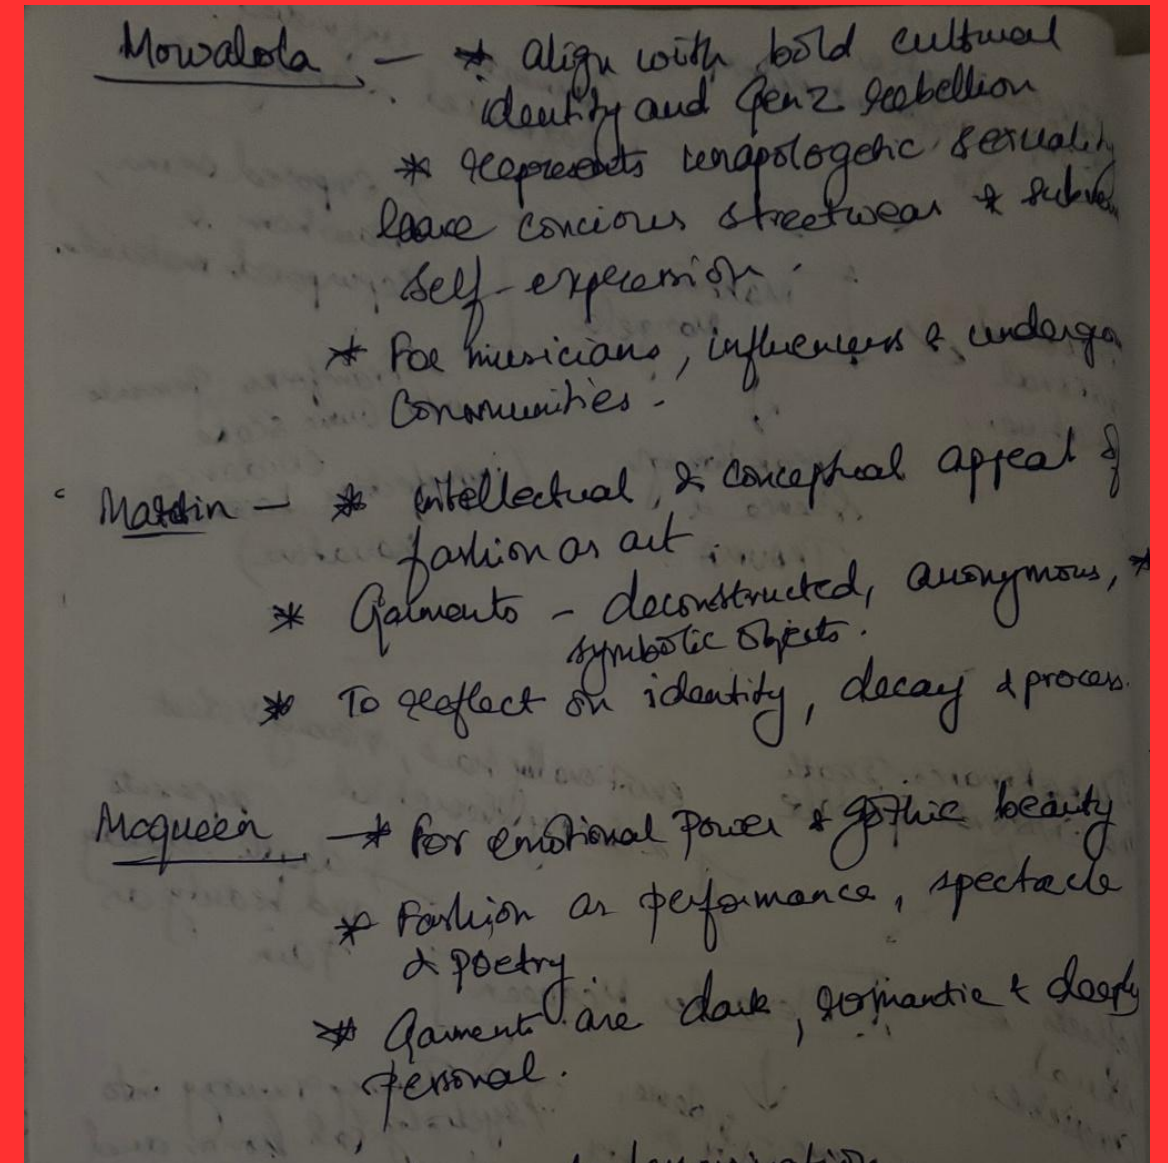 Mowalola :- * align with bold cultural
identity and Gen Z rebellion
* represents unapologetic sexuality
concious streetwear &
self-expression.
* For musicians, influencers &
Communities.
Martin - * intellectual & conceptual appeal of
fashion as art.
* Garments - deconstructed, anonymous, *
symbolic objects.
* To reflect on identity, decay & process.
Mcqueen - * For emotional power & gothic beauty
* Fashion as performance, spectacle
& poetry
* Garments are dark, romantic & deeply
personal.